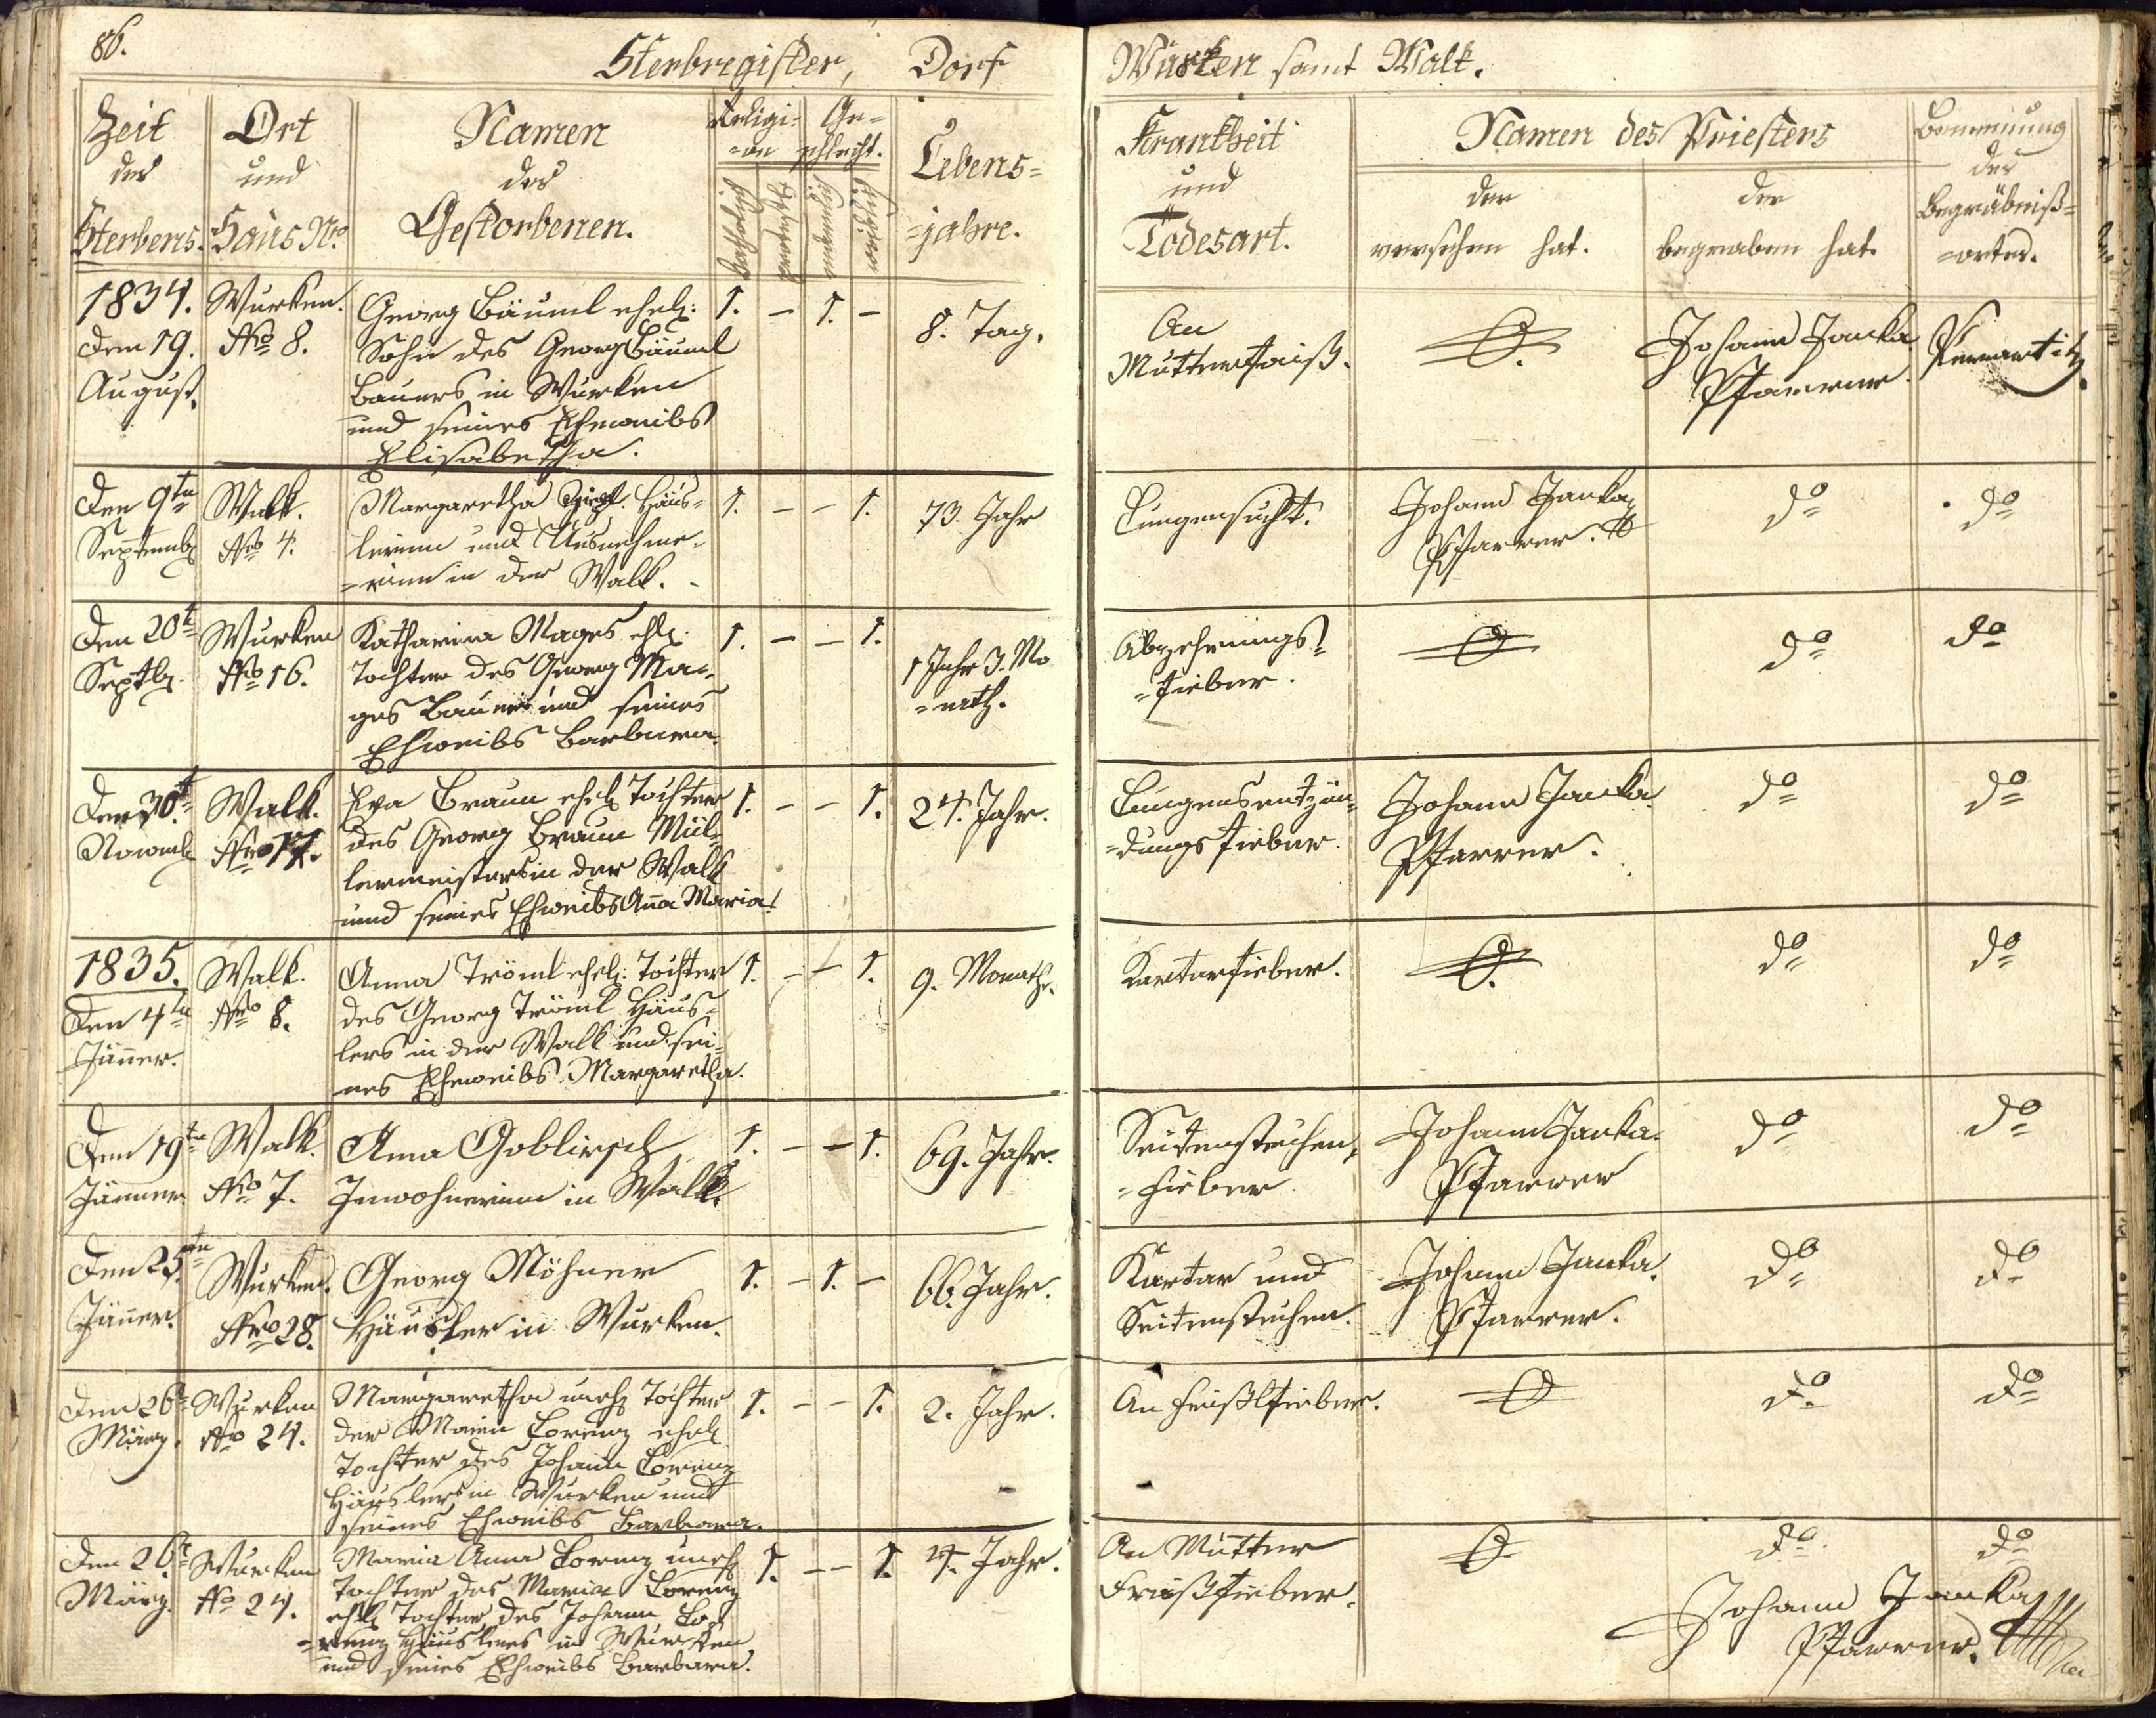 86.
Sterbregister, Dorf Wurken samt Walk.
Zeit des Sterbens.
Ort und Haus Nro
Namen des Gestorbenen.
Religion
katholisch
Geschlecht.
männlich
weiblich
Lebens=
=jahre.
Krankheit und Todesart.
Namen des Priesters
der versehen hat.
der begraben hat.
Benennung des Begräbniß=
=ortes.
1834.
Den 19.
August.
Wurken.
Nro 8.
Georg Bäuml ehel:
Sohn des Georg Bäuml
Bauers in Wurken
und seines Eheweibs
Elisabetha.
1. – 1. –
8. Tag.
An
Mutterfraiß.
Johann Janka
Pfarrer.
Pernartitz.
Den 9ten
Septemb
Walk.
Nro 4.
Margaretha Häus=
lerinn und Ausnehme=
=rinn in der Walk.
1. – – 1.
73. Jahr
Lungensucht.
Johann Janka
Pfarrer.
do
do
Den 20t
Septb.
Wurken
Nro 16.
Katharina Mages ehl:
Tochter des Georg Ma=
ges Bauers und seines
Eheweibs Barbara.
1. – – 1.
1 Jahr 3. Mo
=nath.
Abzehrungs=
=fieber.
do
do
Den 30t
Novemb
Walk.
Nro 17.
Eva Braun ehel Tochter
des Georg Braun Mül=
lermeisters in der Walk
und seines Eheweibs Aña Maria.
1. – – 1.
24. Jahr.
Lungensentzün=
=dungsfieber.
Johann Janka
Pfarrer.
do
do
1835.
Den 4ten
Jäner.
Walk.
Nro 8.
Anna Tröml ehel: Tochter
des Georg Tröml Häus=
lers in der Walk und sei=
nes Eheweibs Margaretha.
1. – – 1.
9. Monath.
Kartarfieber.
do
do
Den 19ten
Jänner.
Walk.
Nro 7.
Anna Goblirsch
Inwohnerinn in Walk.
1. – – 1.
69. Jahr.
Seitenstechen=
=fieber.
Johann Janka
Pfarrer
do
do
Den 25ten
Jäner.
Wurken.
Nro 28.
Georg Möhner
Häusler in Wurken.
1. – 1. –
66. Jahr.
Kartar und
Seitenstechen.
Johann Janka
Pfarrer.
do
do
Den 26t
März.
Wurken
Nro 24.
Margaretha uneh Tochter
der Maria Lorenz ehel
Tochter des Johann Lorenz
Häuslers in Wurken und
seines Eheweibs Barbara.
1. – – 1.
2. Jahr.
An fraißlfieber.
do
do
Den 26t
März.
Wurken
No 24.
Maria Anna Lorenz uneh
Tochter der Maria Lorenz
ehel Tochter des Johann Lo=
=renz Häuslers in Wurken
und seines Eheweibs Barbara.
1. – – 1.
4. Jahr.
An Mutter
Fraißfieber.
do
do
Johann Janka
Pfarrer.